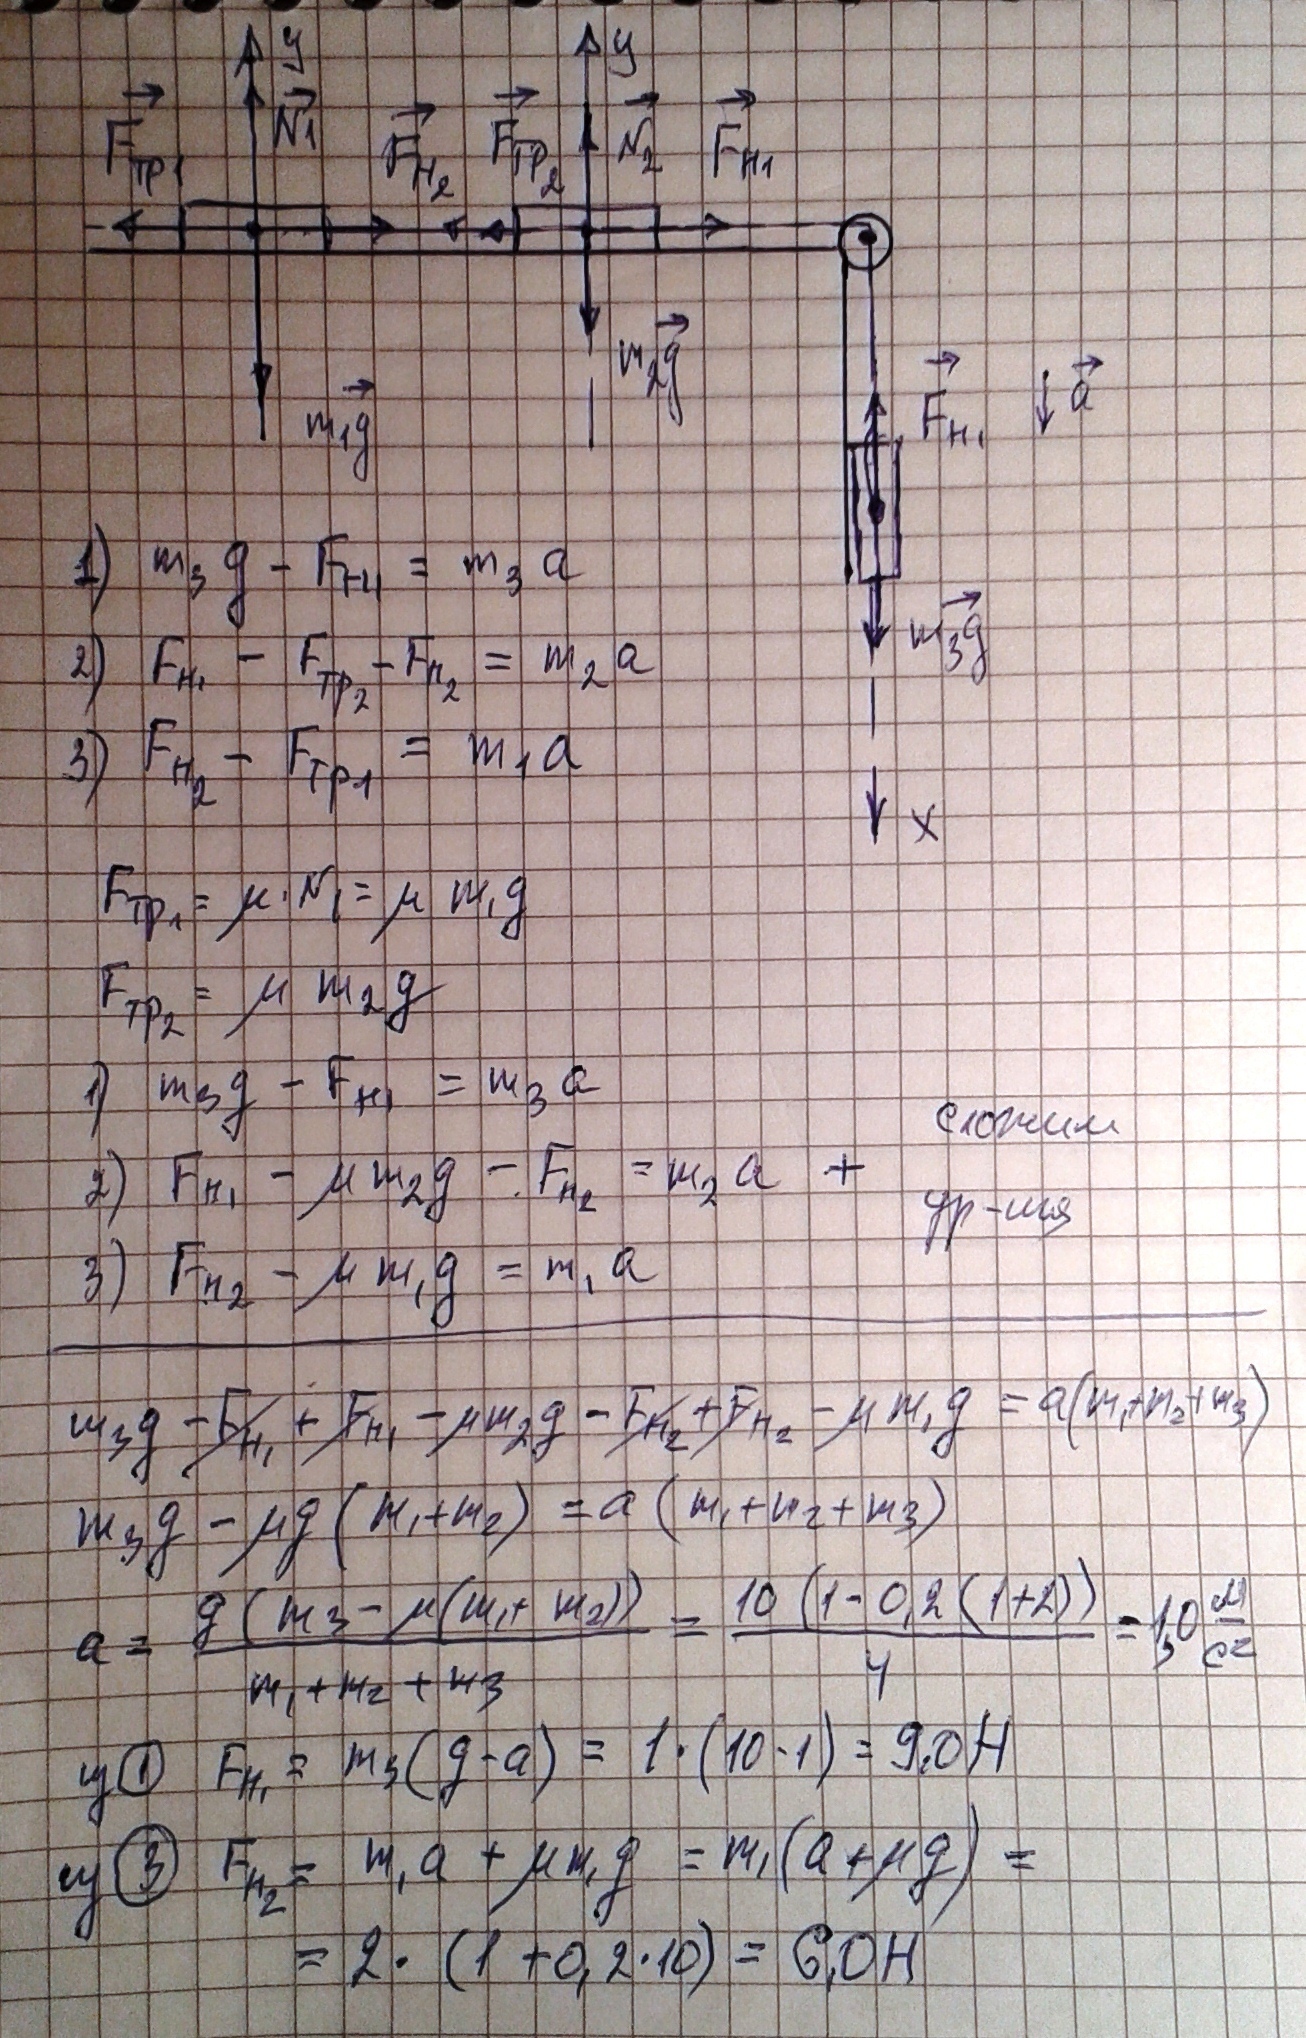 y y
F⃗тр1 N⃗1 F⃗н2 F⃗тр2 N⃗2 F⃗н1
m1g⃗ m2g⃗ F⃗н1 a⃗
m3g⃗
x
1) m3g - Fн1 = m3a
2) Fн1 - Fтр2 - Fн2 = m2a
3) Fн2 - Fтр1 = m1a
Fтр1 = μ·N1 = μ m1g
Fтр2 = μ m2g
1) m3g - Fн1 = m3a
2) Fн1 - μm2g - Fн2 = m2a + сложим
ур-ния
3) Fн2 - μm1g = m1a
m3g - Fн1 + Fн1 - μm2g - Fн2 + Fн2 - μm1g = a(m1+m2+m3)
m3g - μg(m1+m2) = a(m1+m2+m3)
a = g(m3 - μ(m1+m2)) / m1+m2+m3 = 10(1-0,2(1+2)) / 4 = 1,0 м/с2
из ① Fн1 = m3(g-a) = 1·(10-1) = 9,0Н
из ③ Fн2 = m1a + μm1g = m1(a+μg) =
= 2·(1+0,2·10) = 6,0Н